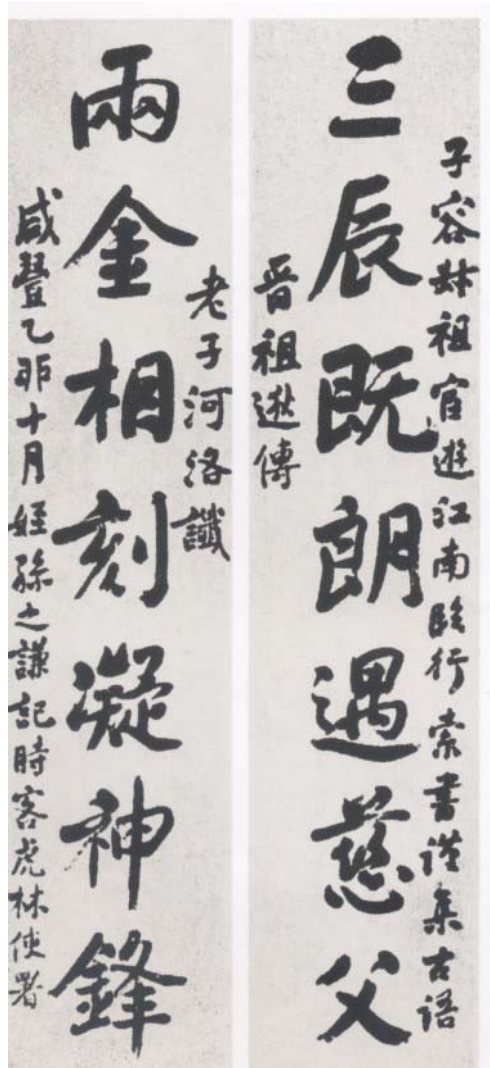 子容叔祖官遊江南臨行索書謹集古語
三辰既朗遇慈父
晉祖逖傳
老子河洛讖
兩金相刻凝神鋒
咸豐乙卯十月姪孫之謙記時客虎林使署